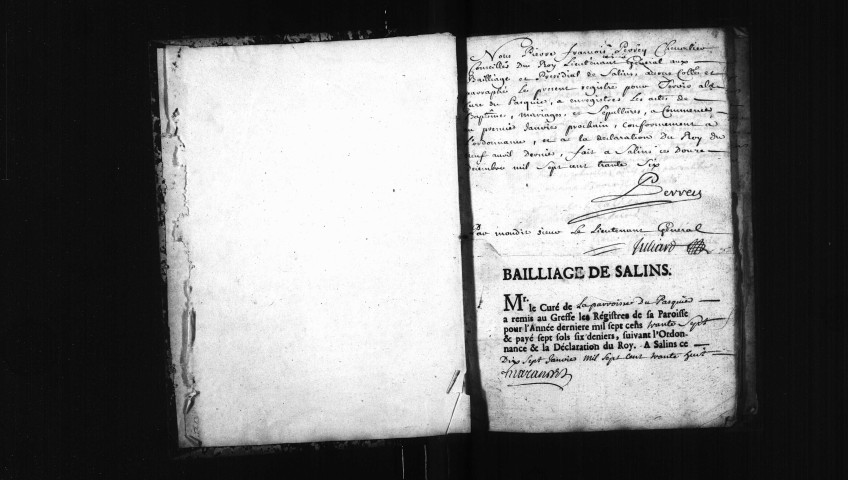 Nous Pierre François Perrey Chevalier
Conseiller du Roy Lieutenant Général aux
Bailliage et Présidial de Salins, avons Collé et
parraphé le present registre pour servir au
Curé du Pasquier, a enregistrer les actes de
Baptemes, mariages, et Sepultures, a Commencer
au premier Janvier prochain, conformement a
l'ordonnance, et a la declaration du Roy du
neuf avril dernier, fait a Salins ce douze
Decembre mil Sept cent trente Six
Perrey
Par mondit sieur le Lieutenant Général
Juliard
BAILLIAGE DE SALINS.
Mr. le Curé de La parroisse du Pasquier
a remis au Greffe les Régistres de sa Paroisse
pour l'Année derniere mil sept cens trante Sept
& payé sept sols six deniers, suivant l'Ordon-
nance & la Déclaration du Roy. A Salins ce
Dix Sept Janvier mil Sept Cent trante huit